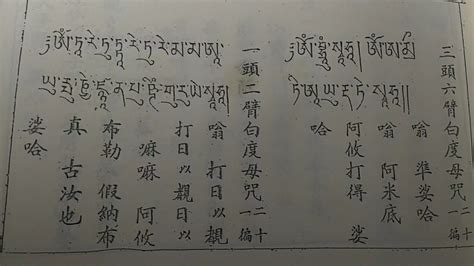 三頭六臂白度母咒二十一徧
ༀ་བྷྲཱུྃ་སྭཱ་ཧཱ། ༀ་ཨ་མྲྀ
ཏེ་ཨཱ་ཡུ་ར་དེ་སྭཱ་ཧཱ།།
嗡 準娑哈
嗡 阿米底
阿攸打得 娑
哈
一頭二臂白度母咒二十一徧
༄ༀ་ཏཱ་རེ་ཏུ་ཏྟཱ་རེ་ཏུ་རེ་མ་མ་ཨཱ་
ཀུ་རུ་ཡེ་སྭཱ་ཧཱ།
嗡 打日以 覩
打日以覩日以
嘛嘛 阿攸
布勒 假納布
真 古汝也
娑哈